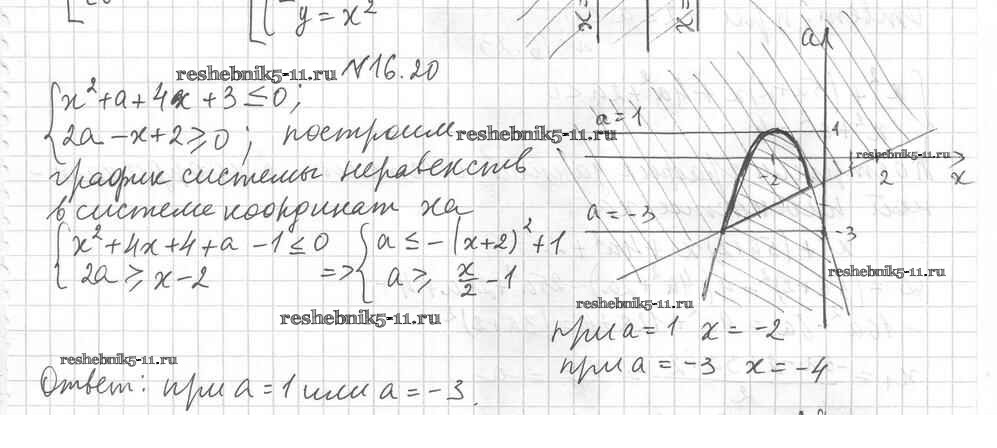 y = x²
x =
x =
reshebnik5-11.ru №16.20
x² + a + 4x + 3 ≤ 0;
2a - x + 2 ≥ 0; построим
reshebnik5-11.ru
график системы неравенств
в системе координат xa
x² + 4x + 4 + a - 1 ≤ 0
2a ≥ x - 2
=> a ≤ -(x+2)² + 1
a ≥ x/2 - 1
reshebnik5-11.ru
reshebnik5-11.ru
Ответ: при a = 1 или a = -3.
a
a = 1
1
reshebnik5-11.ru
-2
2
x
a = -3
-3
reshebnik5-11.ru
reshebnik5-11.ru
при a = 1 x = -2
при a = -3 x = -4